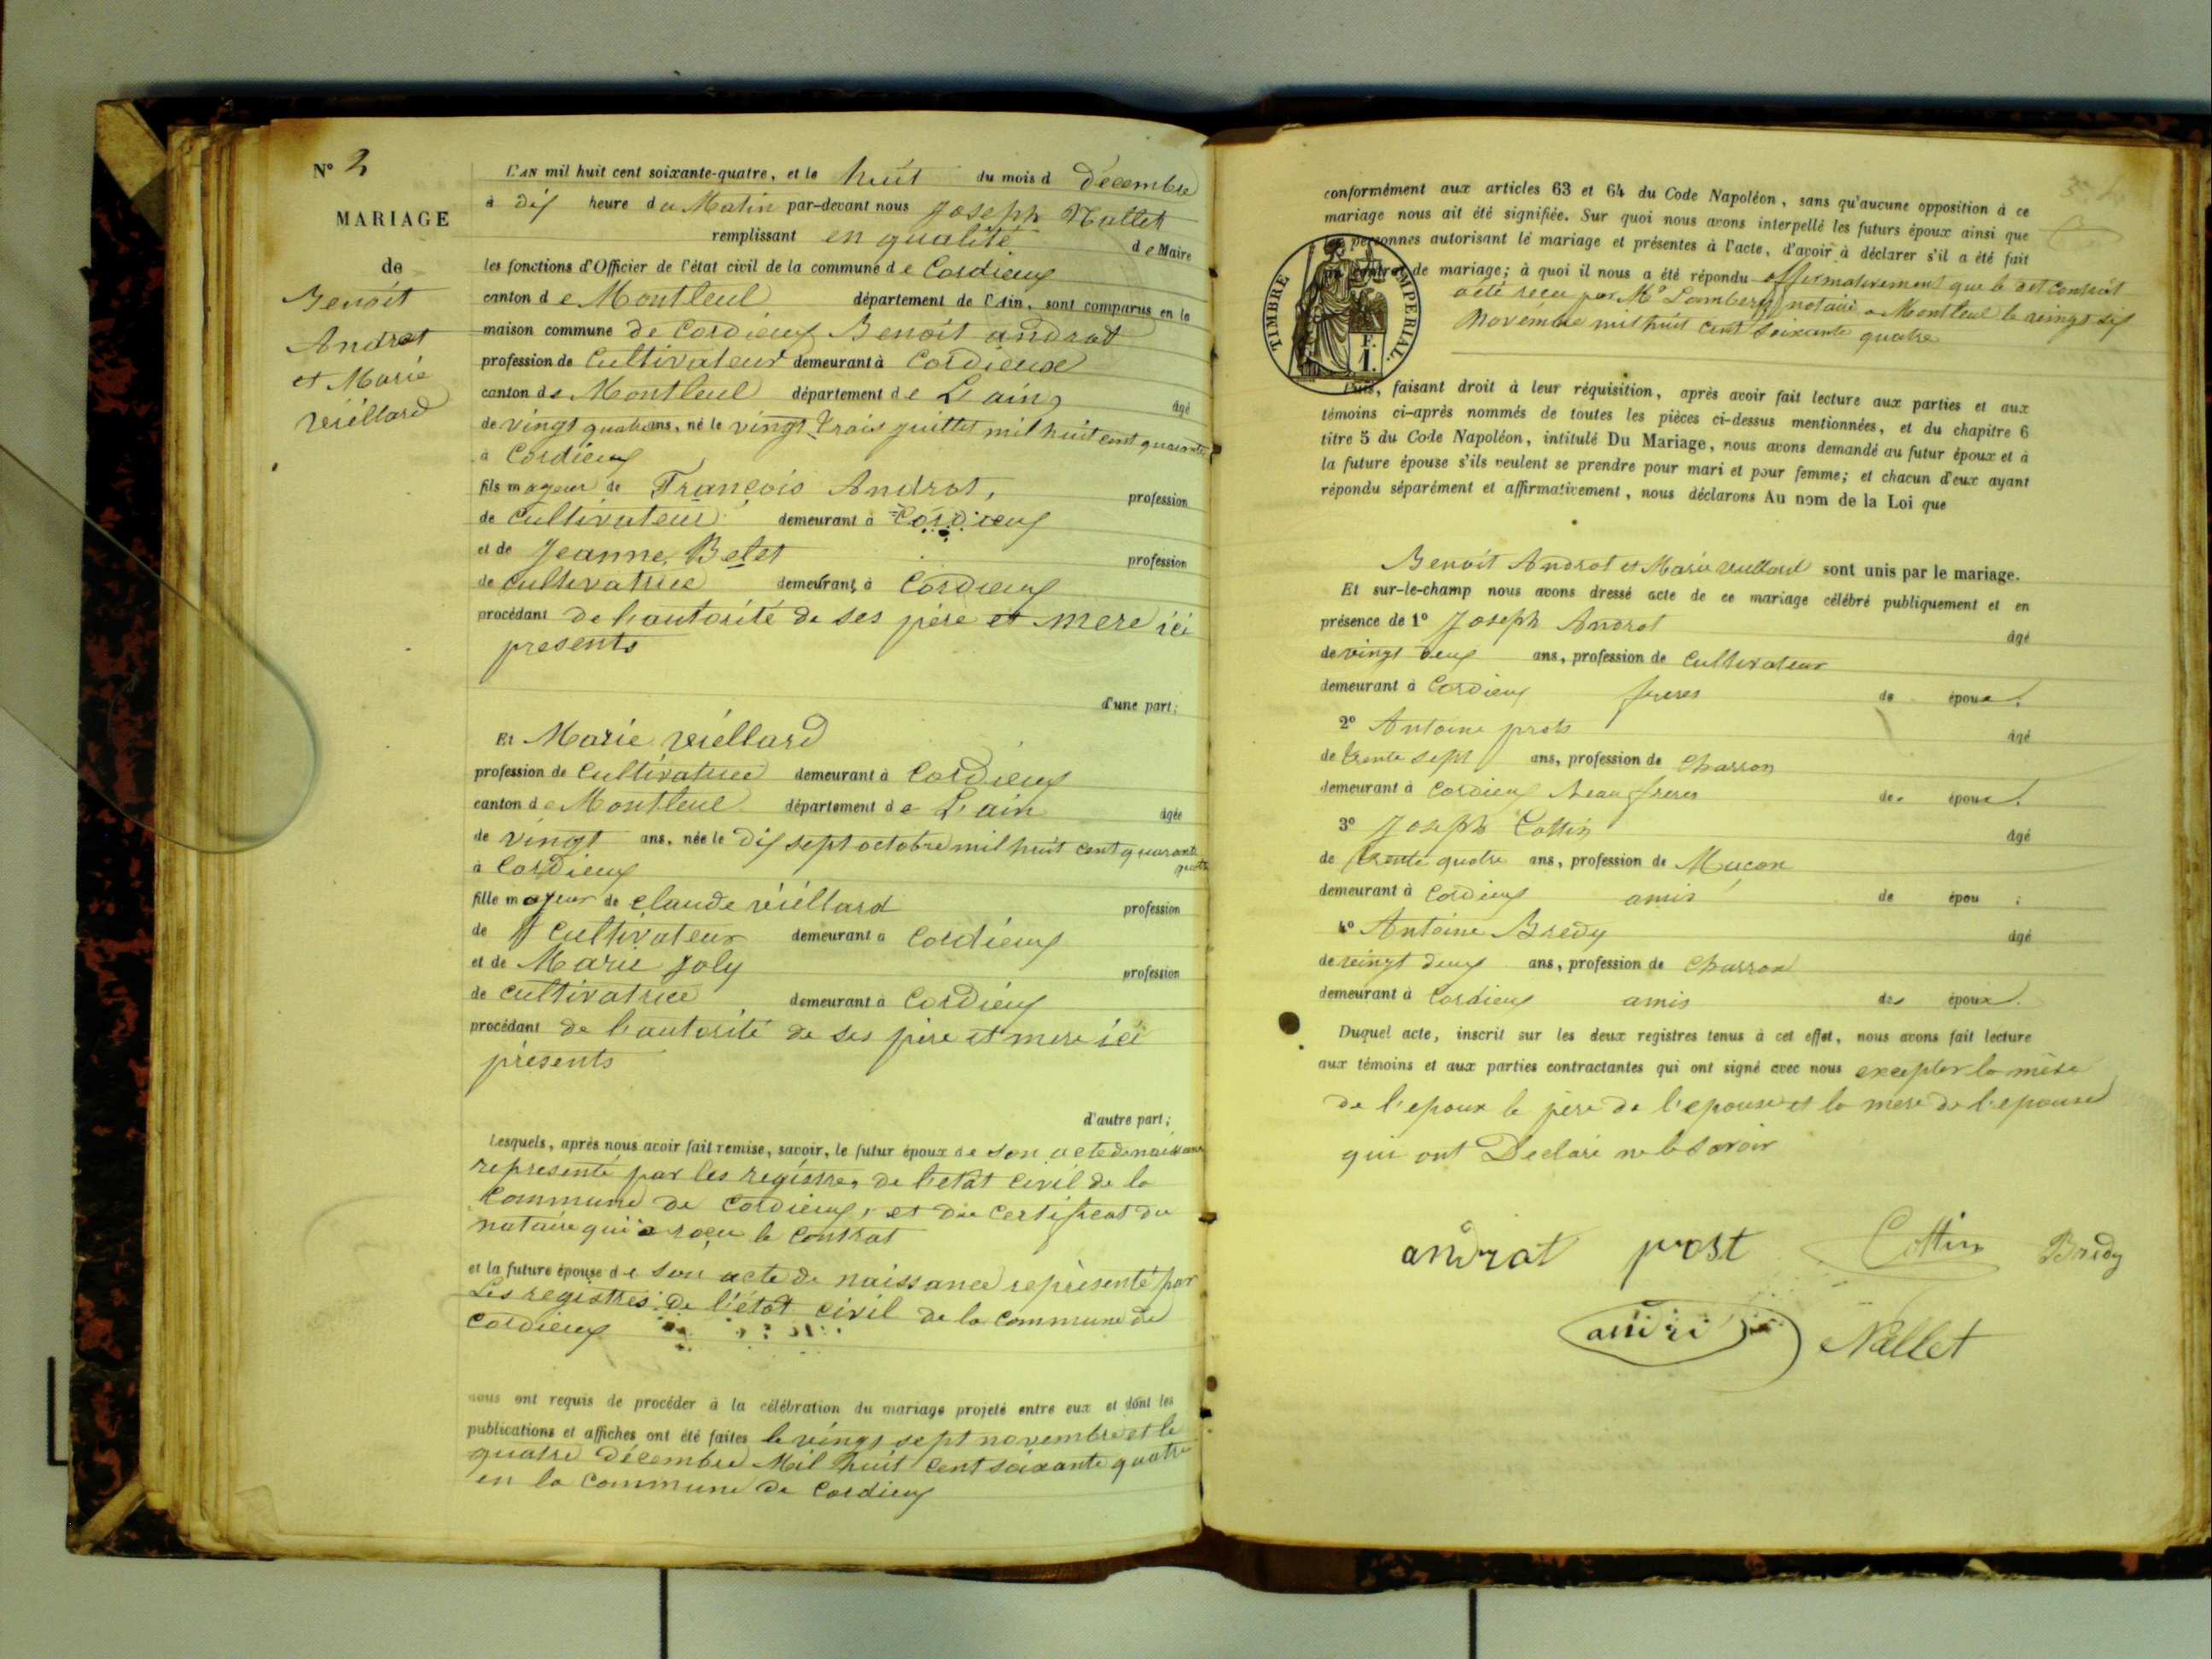 N° 2
MARIAGE
de
Benoit
Andrat
et Marie
viéllard
L'AN mil huit cent soixante-quatre, et le huit du mois d Décembre
à dix heure du Matin par-devant nous Joseph Nallet
remplissant en qualité de Maire
les fonctions d'Officier de l'état civil de la commune de Cordieux
canton de Montleul département de l'Ain, sont comparus en la
maison commune de Cordieux Benoit andrat
profession de Cultivateur demeurant à Cordieux
canton de Montleul département de L'ain, âgé
de vingt quatre ans, né le vingt trois juillet mil huit cent quarante
à Cordieux
fils mageur de François Andrat, profession
de Cultivateur demeurant à Cordieux
et de Jeanne Betet profession
de cultivatrice demeurant à Cordieux
procédant de l'autorité de ses père et mere ici
presents
d'une part;
Et Marie viéllard
profession de Cultivatrice demeurant à Cordieux
canton de Montleul département de L'ain âgée
de vingt ans, née le dix sept octobre mil huit cent quarante
quatre
à Cordieux
fille majeur de claude viéllard profession
de Cultivateur demeurant à Cordieux
et de Marie Joly profession
de cultivatrice demeurant à Cordieux
procédant de l'autorité de ses père et mere ici
présents
d'autre part;
Lesquels, après nous avoir fait remise, savoir, le futur époux de son acte de naissance
representé par les registres de l'etat civil de la
Commune de Cordieux, et du certificat du
notaire qui a reçu le contrat
et la future épouse de son acte de naissance représenté par
Les registres de l'état civil de la commune de
Cordieux
nous ont requis de procéder à la célébration du mariage projeté entre eux et dont les
publications et affiches ont été faites le vingt sept novembre et le
quatre Décembre Mil huit cent soixante quatre
en la commune de Cordieux
conformément aux articles 63 et 64 du Code Napoléon, sans qu'aucune opposition à ce
mariage nous ait été signifiée. Sur quoi nous avons interpellé les futurs époux ainsi que
les personnes autorisant le mariage et présentes à l'acte, d'avoir à déclarer s'il a été fait
un contrat de mariage; à quoi il nous a été répondu affirmativement que le dit contrat
a été reçu par Me notaire a Montleul le vingt six
Novembre mil huit cent soixante quatre
TIMBRE IMPERIAL
F.
1.
Puis, faisant droit à leur réquisition, après avoir fait lecture aux parties et aux
témoins ci-après nommés de toutes les pièces ci-dessus mentionnées, et du chapitre 6
titre 5 du Code Napoléon, intitulé Du Mariage, nous avons demandé au futur époux et à
la future épouse s'ils veulent se prendre pour mari et pour femme; et chacun d'eux ayant
répondu séparément et affirmativement, nous déclarons Au nom de la Loi que
Benoit Andrat et Marie viellard sont unis par le mariage.
Et sur-le-champ nous avons dressé acte de ce mariage célébré publiquement et en
présence de 1° Joseph Andrat âgé
de vingt deux ans, profession de Cultivateur
demeurant à Cordieux freres de époux.
2° Antoine prost âgé
de trente sept ans, profession de Charron
demeurant à Cordieux Beau freres de époux.
3° Joseph Cottin âgé
de trente quatre ans, profession de Macon
demeurant à Cordieux amis de épou ;
4° Antoine Bredy âgé
de vingt deux ans, profession de Charron
demeurant à Cordieux amis des époux.
Duquel acte, inscrit sur les deux registres tenus à cet effet, nous avons fait lecture
aux témoins et aux parties contractantes qui ont signé avec nous excepter la mère
de l'epoux le père de l'epouse et la mere de l'epouse
qui ont Declaré ne le savoir
andrat prost Cottin Bredy
Nallet